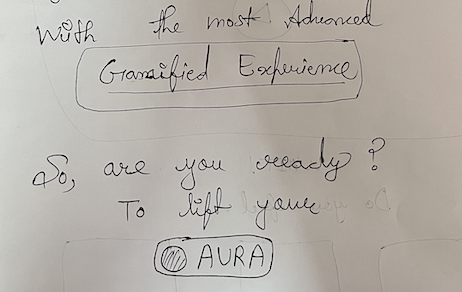 With the most Advanced
Gamified Experience
So, are you ready?
To lift your
AURA